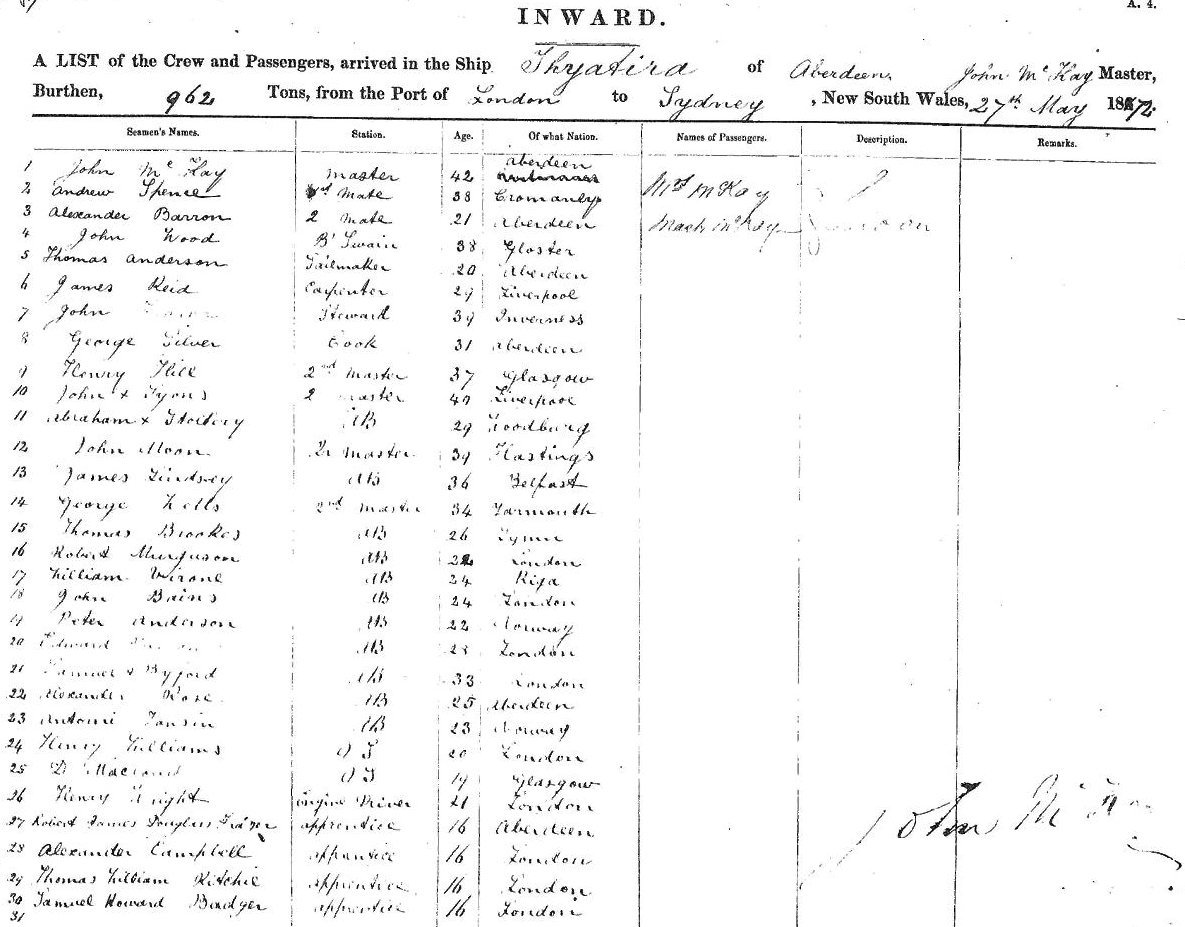 A. 4.
INWARD.
A LIST of the Crew and Passengers, arrived in the Ship Thyatira of Aberdeen, John Mc Kay Master,
Burthen, 962 Tons, from the Port of London to Sydney, New South Wales, 27th May 1872
Seamen's Names. Station. Age. Of what Nation. Names of Passengers. Description. Remarks.
1 John Mc Kay master 42 aberdeen
2 Andrew Spence 1st Mate 38 Cromanty Mrs McKay
3 Alexander Barron 2 Mate 21 Aberdeen McKay
4 John Wood B' Swain 38 Gloster
5 Thomas Anderson Sailmaker 20 Aberdeen
6 James Reid Carpenter 29 Liverpool
7 John Steward 39 Inverness
8 George Silver Cook 31 aberdeen
9 Henry Hill 2nd Master 37 Glasgow
10 John x Lyons 2 Master 40 Liverpool
11 Abraham x AB 29 Woodburg
12 John Moon Qr Master 39 Hastings
13 James Lindsey AB 36 Belfast
14 George Wells 2nd Master 34 Yarmouth
15 Thomas Brookes AB 26 Lynn
16 Robert Murguson AB 22 London
17 William AB 24 Riga
18 John Bains AB 24 London
19 Peter Anderson AB 22 Norway
20 Edward AB 23 London
21 Samuel x Byford AB 33 London
22 Alexander Rose AB 25 Aberdeen
23 Antomi Jansin AB 23 Norway
24 Henry Williams O S 20 London
25 D O S 19 Glasgow
26 Henry Wright Engine Driver 21 London
27 Robert James Douglass apprentice 16 Aberdeen
28 Alexander Campbell apprentice 16 London
29 Thomas William Ritchie apprentice 16 London
30 Samuel Howard Badger apprentice 16 London
31
John Mc Kay